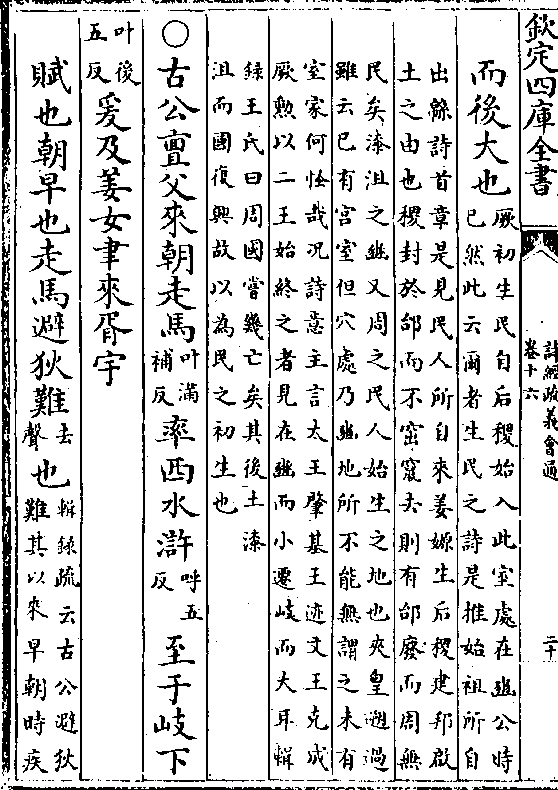 欽定四庫全書
詩經疏義會通
卷十六
二十
而後大也
厥初生民自后稷始入此室處在豳公時
已然此云爾者生民之詩是推始祖所自
出緜詩首章是見民人所自來姜嫄生后稷建邦啟
土之由也稷封於邰而不窋竄去則有邰廢而周無
民矣漆沮之豳又周之民人始生之地也夾皇遡過
雖云已有宮室但穴處乃豳地所不能無謂之未有
室家何怪哉况詩意主言太王肇基王迹文王克成
厥勲以二王始終之者見在豳而小遷岐而大耳輯
録王氏曰周國嘗幾亡矣其後土漆
沮而國復興故以為民之初生也
○古公亶父來朝走馬叶滿補反率西水滸呼五反至于岐下
叶後五反爰及姜女聿來胥宇
賦也朝早也走馬避狄難去聲也
輯録疏云古公避狄
難其以來早朝時疾